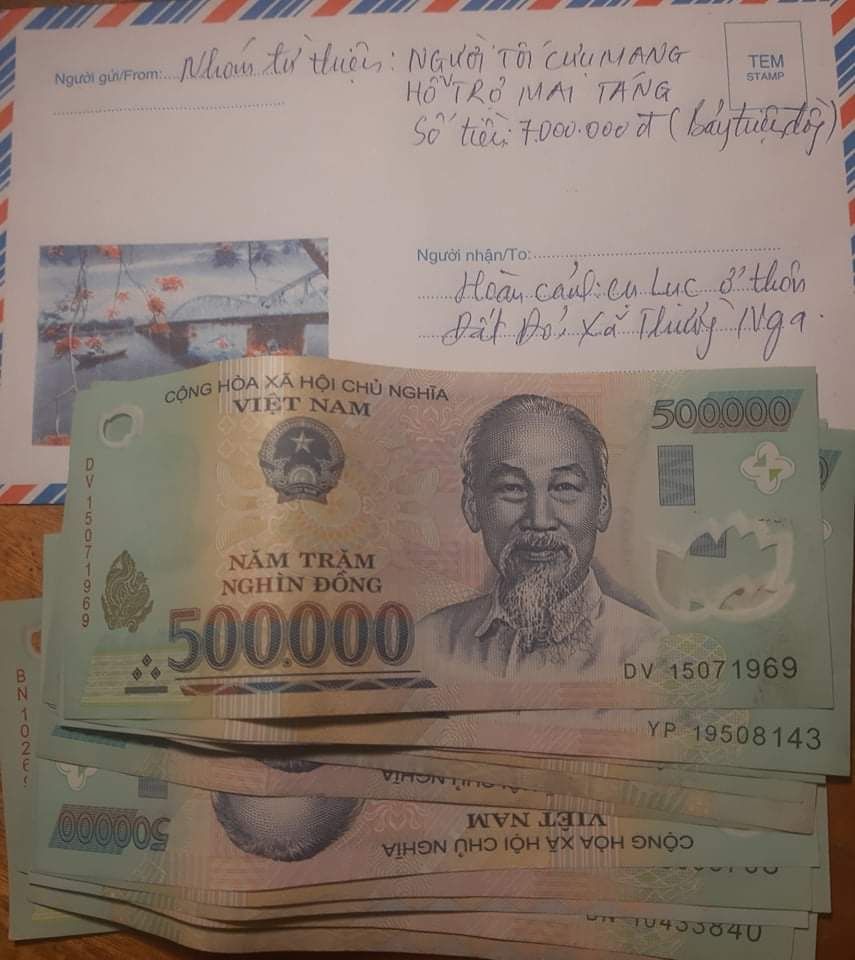 Người gửi/From: Nhóm từ thiện: NGƯỜI TÔI CƯU MANG
HỖ TRỢ MAI TÁNG
Số tiền: 7.000.000 đ (Bảy triệu đồng)
TEM
STAMP
Người nhận/To:
Hoàn cảnh: cụ Lục ở thôn
Đất Đỏ, Xã Thường Nga.
CỘNG HÒA XÃ HỘI CHỦ NGHĨA
VIỆT NAM
500.000
DV 15071969
NĂM TRĂM
NGHÌN ĐỒNG
500.000
DV 15071969
YP 19508143
BN 1026
CỘNG HÒA XÃ HỘI CHỦ NGHĨA
VIỆT NAM
500000
10433840